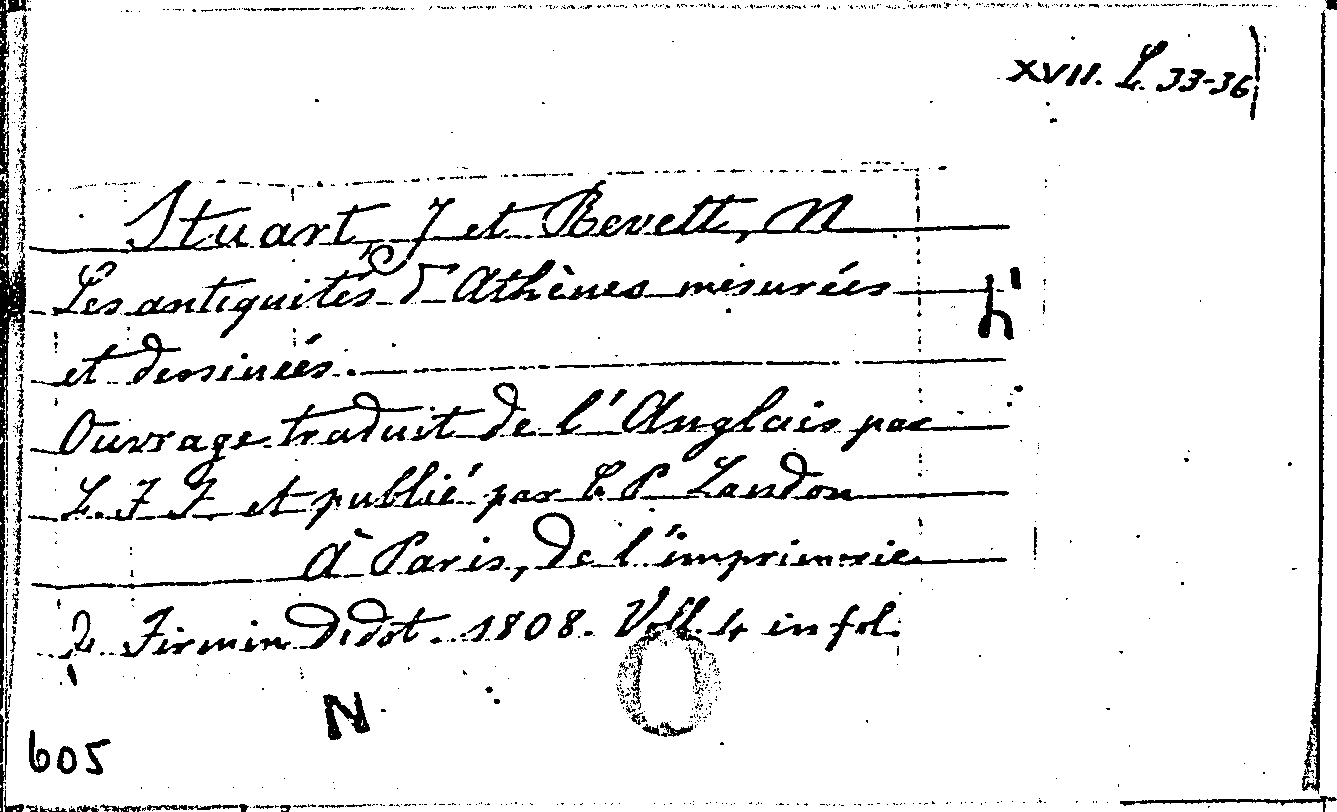 XVII. L. 33-36
Stuart, J et Revett, N
Les antiquités d'Athènes mesurées
et dessinées.
Ouvrage traduit de l'Anglais par
L. F. F. et publié par C. P. Landon
A Paris, de l'imprimerie
Firmin Didot. 1808. Voll. 4 in fol.
N
605